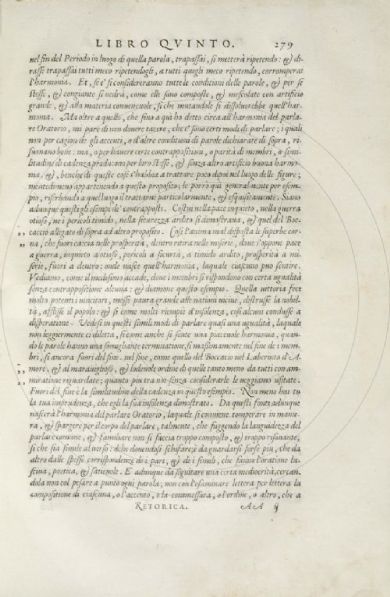 LIBRO QVINTO. 279
nel fin del Periodo in luogo di quella parola, trapassai, si metterà ripetendo: & di-
rasse trapassai tutti meco ripetendogli, a tutti quegli meco ripetendo, corromperai
l'harmonia. Et, se si consideraranno tutte le conditioni delle parole, & per se
stesse, & congiunte si vedrà, come elle sino composte, & mescolate con artificio
grande, & alla materia conuenevole, si che mutandole si dissoluerebbe quell'har-
monia. Ma oltre a quello, che fino a quà ho detto circa all'harmonia del parla-
re Oratorio, mi pare di non douere tacere, che ci sono certi modi di parlare; i quali
non per cagion de gli accenti, o d'altre conditioni di parole dichiarate di sopra, ri-
suonano bene: ma, o per hauere certe contrapositioni, o parità di membri, o somi-
litudine di cadenza producono per loro stesse, & senza altro artificio buona harmo-
nia, &, benche di queste cose s'habbia a trattare poco dipoi nel luogo delle figure;
nientedimeno appartenendo a questo proposito; le porrò quà generalmente per esem-
pio, riserbando a quel luogo il trattarne particolarmente, & esquisitamente. Siano
adunque questi gli esempi de' contrapposti. Costui nella pace inquieto, nella guerra
otioso, ne i pericoli timido, nella sicurezza ardito si dimostraua, & quel del Boc-
caccio allegato di sopra ad altro proposito. Così l'anima mal disposta le superbe cor-
na, che fuori caccia nelle prosperità, dentro ritira nelle miserie, doue s'oppone pace
a guerra, inquieto a otioso, pericoli a sicurtà, a timido ardito, prosperità a mi-
serie, fuora a dentro: onde nasce quell'harmonia, laquale ciascuno può sentire.
Vediamo, come il medesimo accade, doue i membri si rispondono con certa ugualità
senza contrapositione alcuna; & diamone questo esempio. Quella vittoria fece
molto potenti i vincitori, messe paura grande alle nationi vicine, distrusse la nobel-
tà, afflisse il popolo: & si come molti riempiè d'insolenza, così alcuni condusse a
disperatione. Vedesi in questi simili modi di parlare quasi una ugualità, laquale
non leggiermente ci diletta, si come anche si sente una piaceuole harmonia, quan-
do le parole hanno una somigliante terminatione, si massimamente nel fine de i mem-
bri, si ancora fuori del fine. nel fine, come quello del Boccaccio nel Laberinto d'A-
more, & al marauiglioso, & lodeuole ordine di quelle tanto meno da tutti con am-
miratione riguardate; quanto più tra noi senza considerarle le veggiamo usitate.
Fuori del fine è la similitudine della cadenza in questo esempio. Non meno hai tu
la tua imprudenza, che egli la sua insolenza dimostrato. Da questi fonti adunque
nascerà l'harmonia del parlare Oratorio, laquale si conuiene temperare in manie-
ra, & spargere per il corpo del parlare, talmente, che fuggendo la languidezza del
parlar comune, & familiare non si faccia troppo composto, & troppo risonante,
si che sia simile al verso: Alche douendosi schifare è da guardarsi forse più, che da
altro dalle spesse corrispondenze de i pari, & de i simili, che fanno l'oratione la-
sciua, poetica, & satieuole. E adunque da seguitare una certa mediocrità, cercan-
dola non col pesare a punto ogni parola; non con l'esaminare lettera per lettera la
compositione di ciascuna, o l'accento, o la commessura, o l'ordine, o altro, che a
RETORICA. AA ij